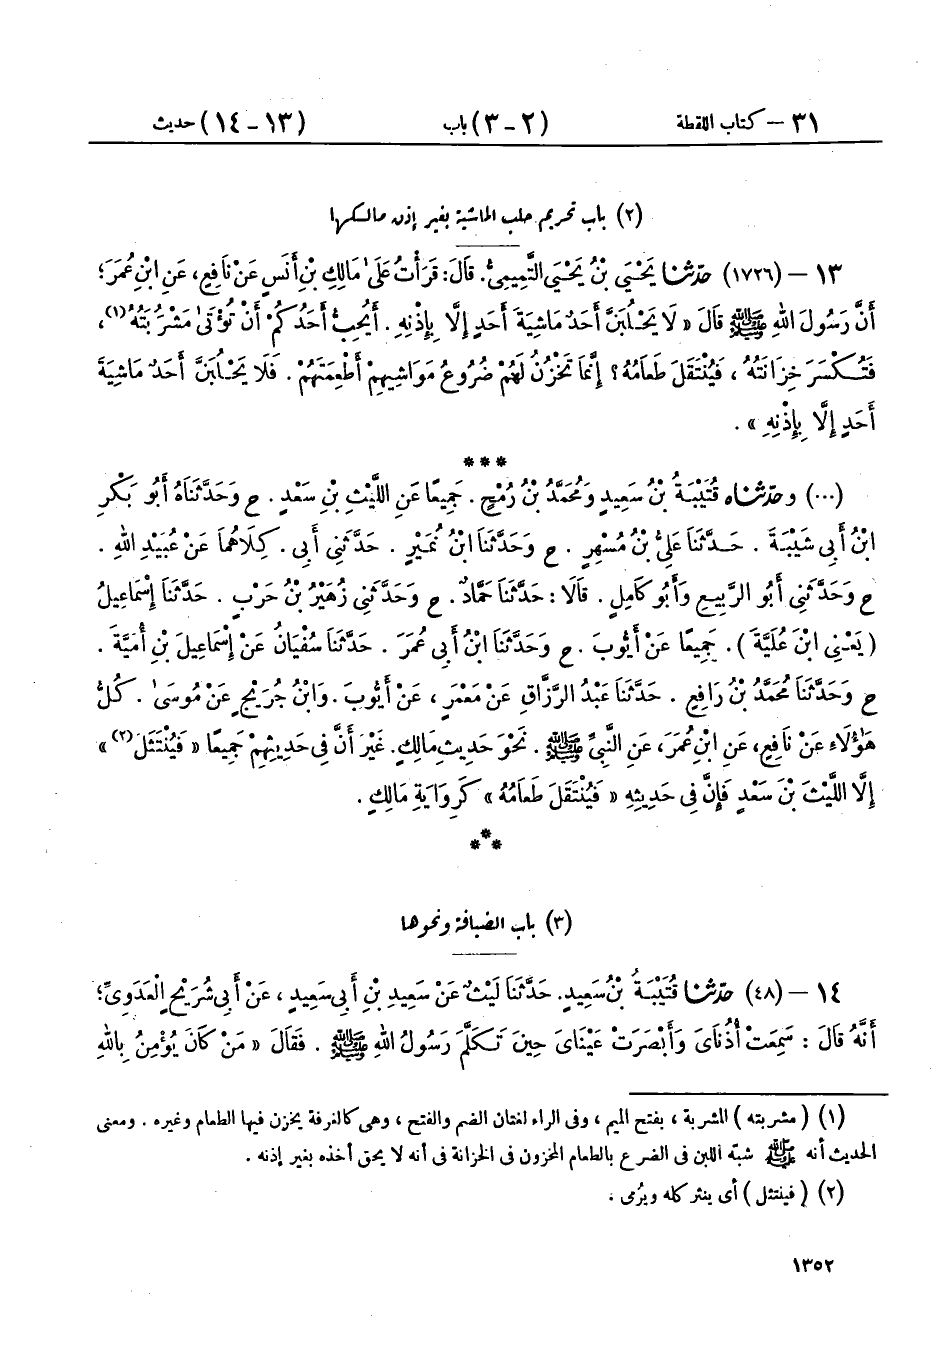 ٣١ – كتاب اللقطة (٢ - ٣) باب (١٣ - ١٤) حديث
(٢) باب تحريم حلب الماشية بغير إذن مالكها
١٣ – (١٧٢٦) حَدَّثَنَا يَحْيَىٰ بْنُ يَحْيَى التَّمِيمِيُّ. قَالَ: قَرَأْتُ عَلَىٰ مَالِكِ بْنِ أَنَسٍ عَنْ نَافِعٍ، عَنِ ابْنِ عُمَرَ؛
أَنَّ رَسُولَ اللهِ ﷺ قَالَ « لَا يَحْلُبَنَّ أَحَدٌ مَاشِيَةَ أَحَدٍ إِلَّا بِإِذْنِهِ . أَيُحِبُّ أَحَدُكُمْ أَنْ تُؤْتَىٰ مَشْرُبَتُهُ(١)،
فَتُكْسَرَ خِزَانَتُهُ ، فَيُنْتَقَلَ طَعَامُهُ ؟ إِنَّمَا تَخْزُنُ لَهُمْ ضُرُوعُ مَوَاشِيهِمْ أَطْعِمَتَهُمْ . فَلَا يَحْلُبَنَّ أَحَدٌ مَاشِيَةَ
أَحَدٍ إِلَّا بِإِذْنِهِ » .
***
(...) وحَدَّثَنَاه قُتَيْبَةُ بْنُ سَعِيدٍ وَمُحَمَّدُ بْنُ رُمْحٍ . جَمِيعًا عَنِ اللَّيْثِ بْنِ سَعْدٍ . ح وَحَدَّثَنَاهُ أَبُو بَكْرِ
ابْنُ أَبِي شَيْبَةَ . حَدَّثَنَا عَلِيُّ بْنُ مُسْهِرٍ . ح وَحَدَّثَنَا ابْنُ نُمَيْرٍ . حَدَّثَنِي أَبِي . كِلَاهُمَا عَنْ عُبَيْدِ اللهِ .
ح وَحَدَّثَنِي أَبُو الرَّبِيعِ وَأَبُو كَامِلٍ . قَالَا : حَدَّثَنَا حَمَّادٌ . ح وَحَدَّثَنِي زُهَيْرُ بْنُ حَرْبٍ . حَدَّثَنَا إِسْمَاعِيلُ
( يَعْنِي ابْنَ عُلَيَّةَ ) . جَمِيعًا عَنْ أَيُّوبَ . ح وَحَدَّثَنَا ابْنُ أَبِي عُمَرَ . حَدَّثَنَا سُفْيَانُ عَنْ إِسْمَاعِيلَ بْنِ أُمَيَّةَ .
ح وَحَدَّثَنَا مُحَمَّدُ بْنُ رَافِعٍ . حَدَّثَنَا عَبْدُ الرَّزَّاقِ عَنْ مَعْمَرٍ ، عَنْ أَيُّوبَ . وَابْنُ جُرَيْجٍ عَنْ مُوسَىٰ . كُلُّ
هَؤُلَاءِ عَنْ نَافِعٍ، عَنِ ابْنِ عُمَرَ، عَنِ النَّبِيِّ ﷺ . نَحْوَ حَدِيثِ مَالِكٍ. غَيْرَ أَنَّ فِي حَدِيثِهِمْ جَمِيعًا « فَيُنْتَثَلَ(٢) »
إِلَّا اللَّيْثَ بْنَ سَعْدٍ فَإِنَّ فِي حَدِيثِهِ « فَيُنْتَقَلَ طَعَامُهُ » كَرِوَايَةِ مَالِكٍ .
***
(٣) باب الضيافة ونحوها
١٤ – (٤٨) حَدَّثَنَا قُتَيْبَةُ بْنُ سَعِيدٍ. حَدَّثَنَا لَيْثٌ عَنْ سَعِيدِ بْنِ أَبِي سَعِيدٍ ، عَنْ أَبِي شُرَيْحٍ الْعَدَوِيِّ؛
أَنَّهُ قَالَ : سَمِعَتْ أُذُنَايَ وَأَبْصَرَتْ عَيْنَايَ حِينَ تَكَلَّمَ رَسُولُ اللهِ ﷺ . فَقَالَ « مَنْ كَانَ يُؤْمِنُ بِاللهِ
(١) ( مشربته ) المشربة ، بفتح الميم ، وفى الراء لغتان الضم والفتح ، وهى كالغرفة يخزن فيها الطعام وغيره . ومعنى
الحديث أنه ﷺ شبّه اللبن فى الضرع بالطعام المخزون فى الخزانة فى أنه لا يحق أخذه بغير إذنه .
(٢) ( فينتثل ) أى ينثر كله ويرُمى .
١٣٥٢